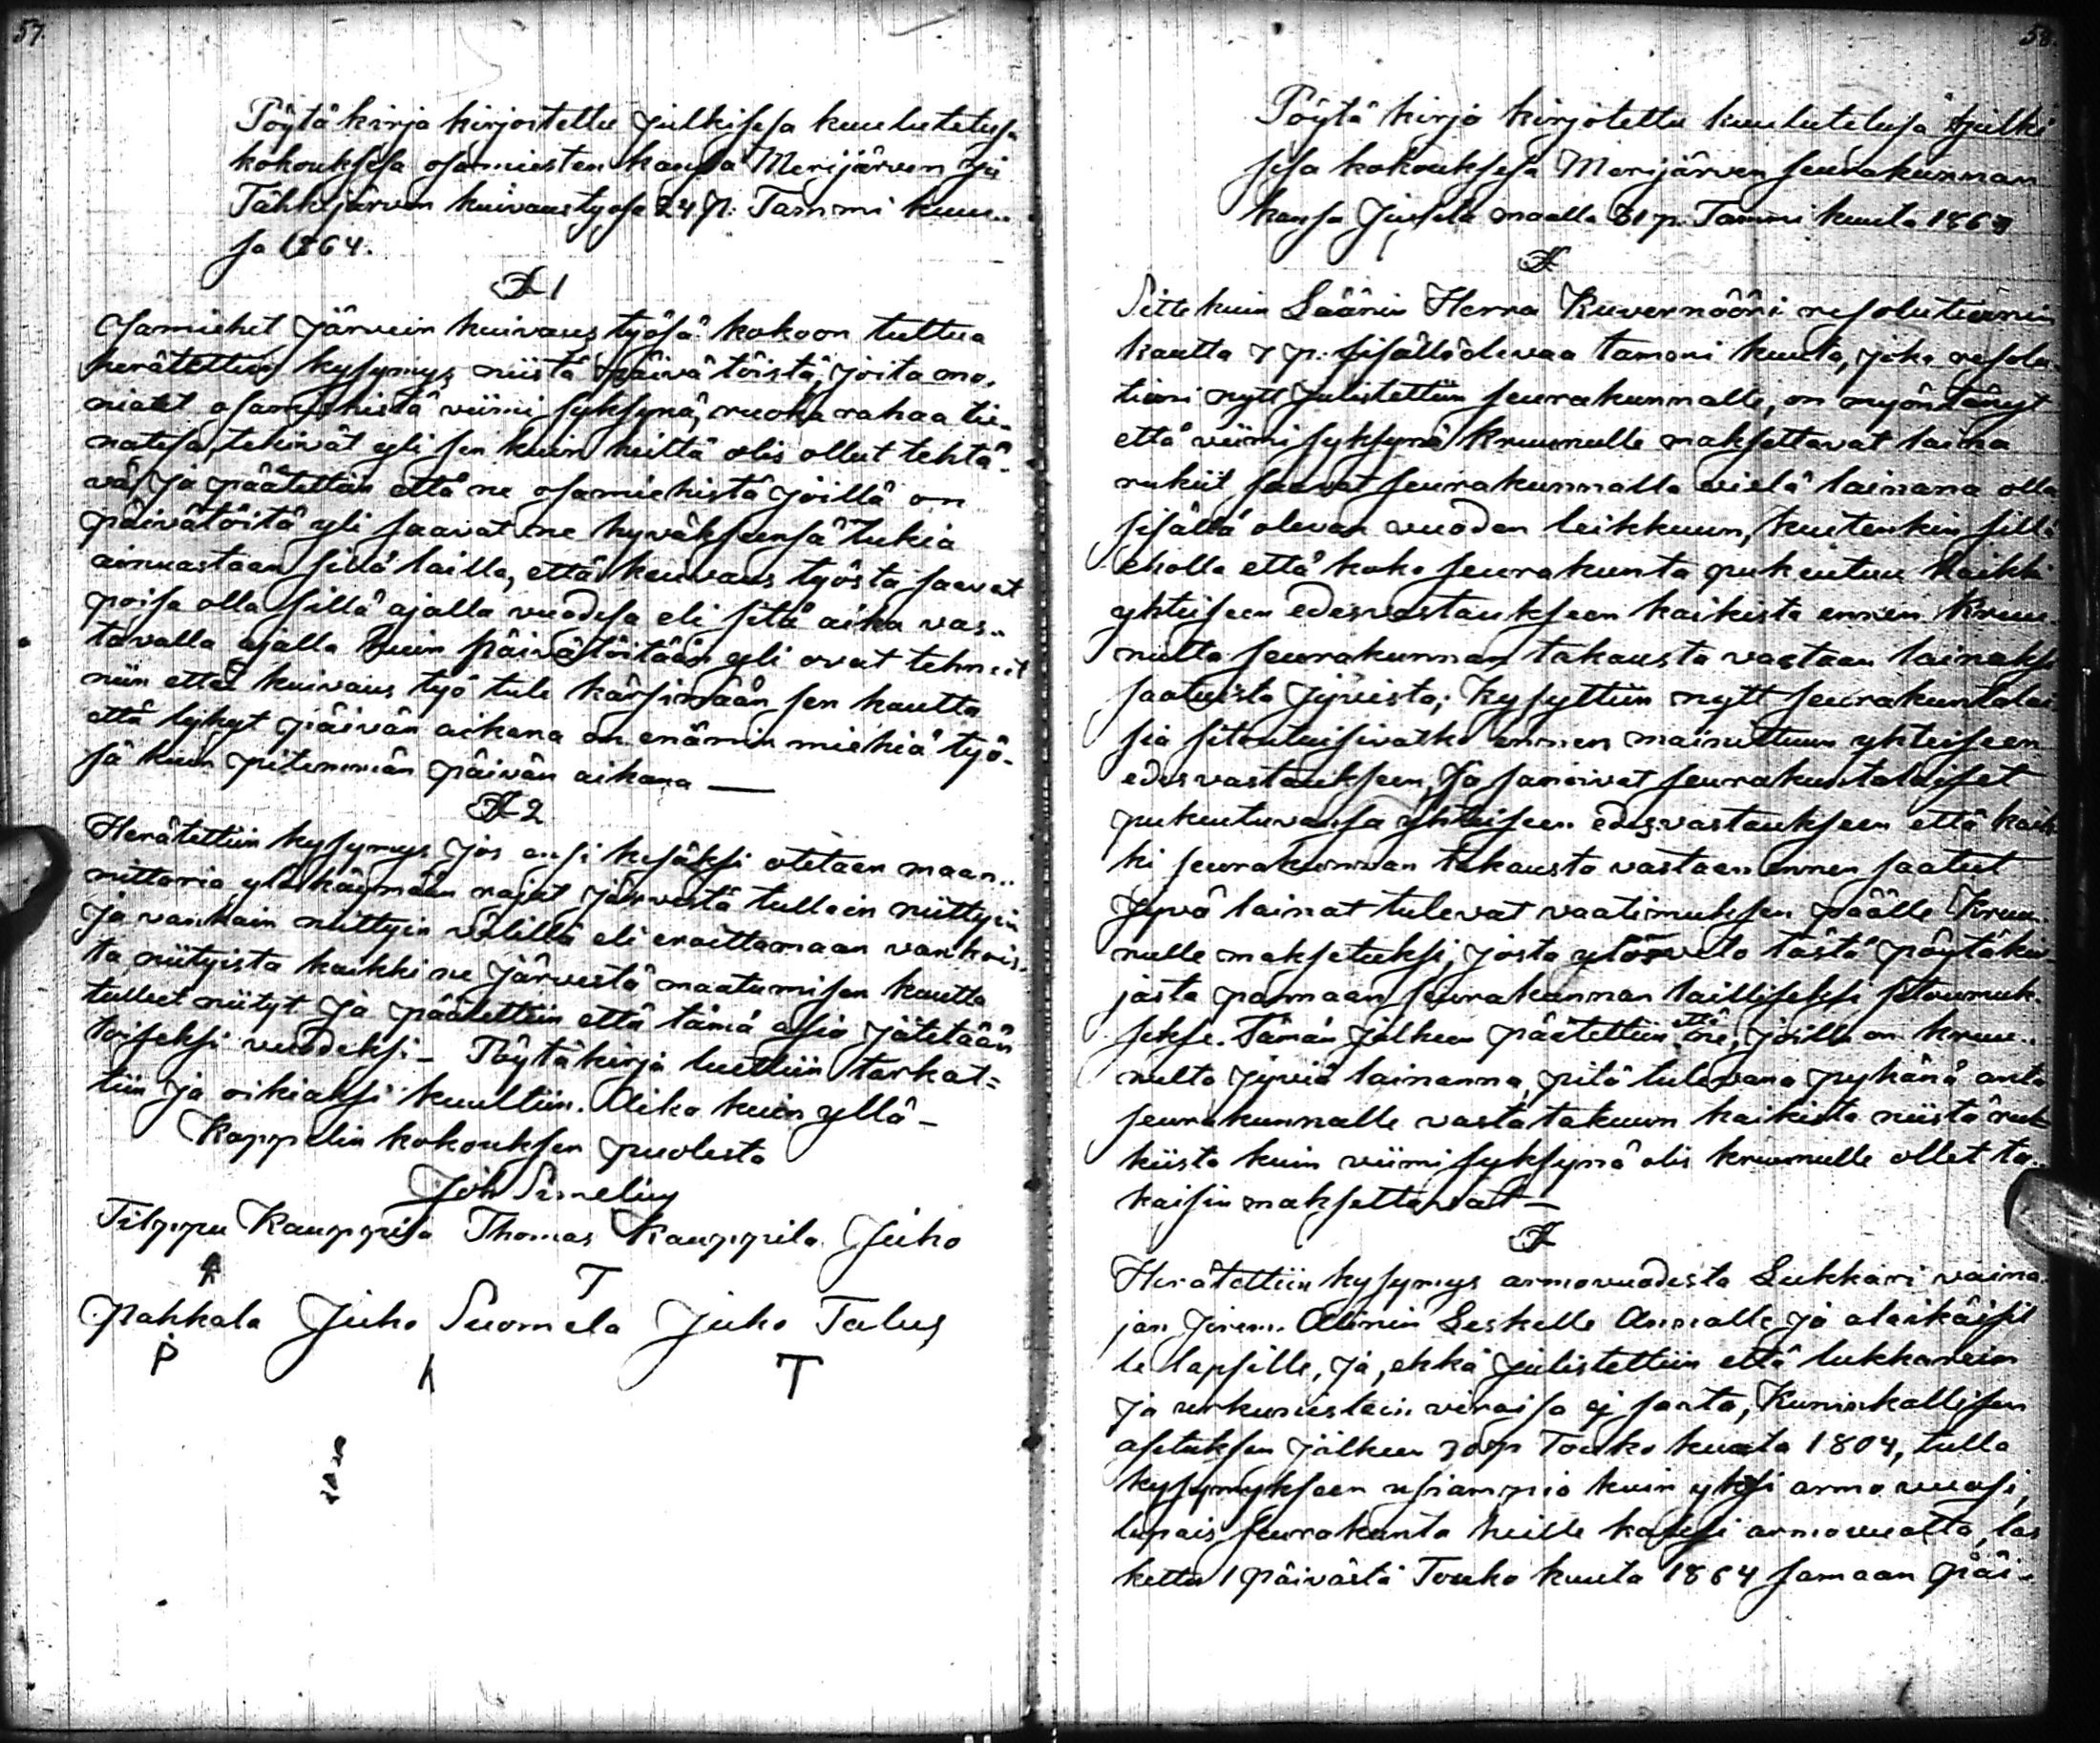 57.
Pöytä kirja kirjoitettu Julkisesa kuulutetusa
kokouksesa osamiesten kansa Merijärven ja
Tähkjärven kuivaustyösä 24 p. Tammi kuu..
sa 1864.
§ 1
Osamiehet Järvein kuivaus työsä kokoon tultua
herätettiin kysymys niistä päivätöistä, joita mo,
niaat osamiehistä viimi syksynä, ruoka rahaa tie-
natesa, tekivät yli sen kuin heiltä olis ollut tehtä-
vä, ja päätettiin että ne osamiehistä joillä on
päivätöitä yli saavat ne hyväksensä lukia
ainuastaan sillä lailla, että kuivaus työstä saavat
poisa olla sillä ajalla vuodesa eli sitä aika vas..
tavalla ajalla kuin päivätöitään yli ovat tehneet
niin ettei kuivaus työ tule kärsimään sen kautta
että lyhyt päivän aikana on enämin miehiä työ-
sä kuin pitemmän päivän aikana —
§ 2
Herätettiin kysymys jos ensi kesäksi otetaan maan..
mittaria ylöskäymään rajat järvestä tullein niittyin
ja vanhain niittyin välillä eli eroittamaan vanhois,
ta niityista kaikki ne järvestä maatumisen kautta
tulleet niityt ja päätettiin että tämä asia jätetään
toiseksi vuodeksi – Pöytäkirja luettiin tarkat=
tiin ja oikiaksi kuultiin. Aika kuin yllä –
Kappelin kokouksen puolesta
Joh Simelius
Filppu Kauppila Thomas Kauppila Juho
T
Pahkala Juho Suomela Juho Talus
P T
58.
Pöytä kirja kirjotettu kuulutetusa julki
sesa kokouksesa Merijärven seurakunnan
kansa Juusola maalla 31 p. Tammi kuuta 1864
§
Sitte kuin Läänin Herra Kuvernööri resolutionin
kautta 7 p. sisällä olevaa tammi kuuta, joka resolu-
tioni nytt julistettiin seurakunnalle, on myöntänyt
että viimi syksynä Kruunulle maksettavat laina
rukiit saavat seurakunnalla vielä lainana olla
sisällä olevan vuoden leikkuun, kuitenkin sillä
eholla että koko seurakunta pukeutuu kaikki
yhteiseen edesvastaukseen kaikista ennen Kruu
nulta seurakunnan takausta vastaan lainaksi
saatuista jyvistä; kysyttiin nytt seurakuntalai
sia sitoutuisivatko ennen mainittuun yhteiseen
edesvastaukseen, ja sanoivat seurakuntalaiset
pukeutuvansa yhteiseen edesvastaukseen että kaik
ki seurakunnan takausta vastaan ennen saatut
Jyvä lainat tulevat vaatimuksen päälle Kruu..
nulle maksetuksi, josta ulosveto tästä pöytäkir
jasta pannaan seurakunnan lailliseksi sitoumuk-
seksi. Tämän jälkeen päätettiin että ne, joilla on kruu..
nulta jyviä lainanna, pitä tulevana pyhänä anta
seurakunnalle vasta takuun kaikista niistä ruk
kiista kuin viimi syksynä olis kruunulle ollet ta..
kaisin maksettavat –
§
Herätettiin kysymys armovuodesta Lukkari vaina.
jan Jerem. Alinin Leskelle Annalle ja alaikäisil
le lapsille, ja, ehkä julistettiin että lukkarein
ja urkunistein viraisa ej santa, Kuninkallisen
asetuksen jälkeen 30 p Touko kuuta 1804, tulla
kysymykseen usiampia kuin yksi armo vuosi,
lupais seurakunta heille kaksi armovuotta, las
kettu 1 päivästä Touko kuuta 1864 samaan päi-